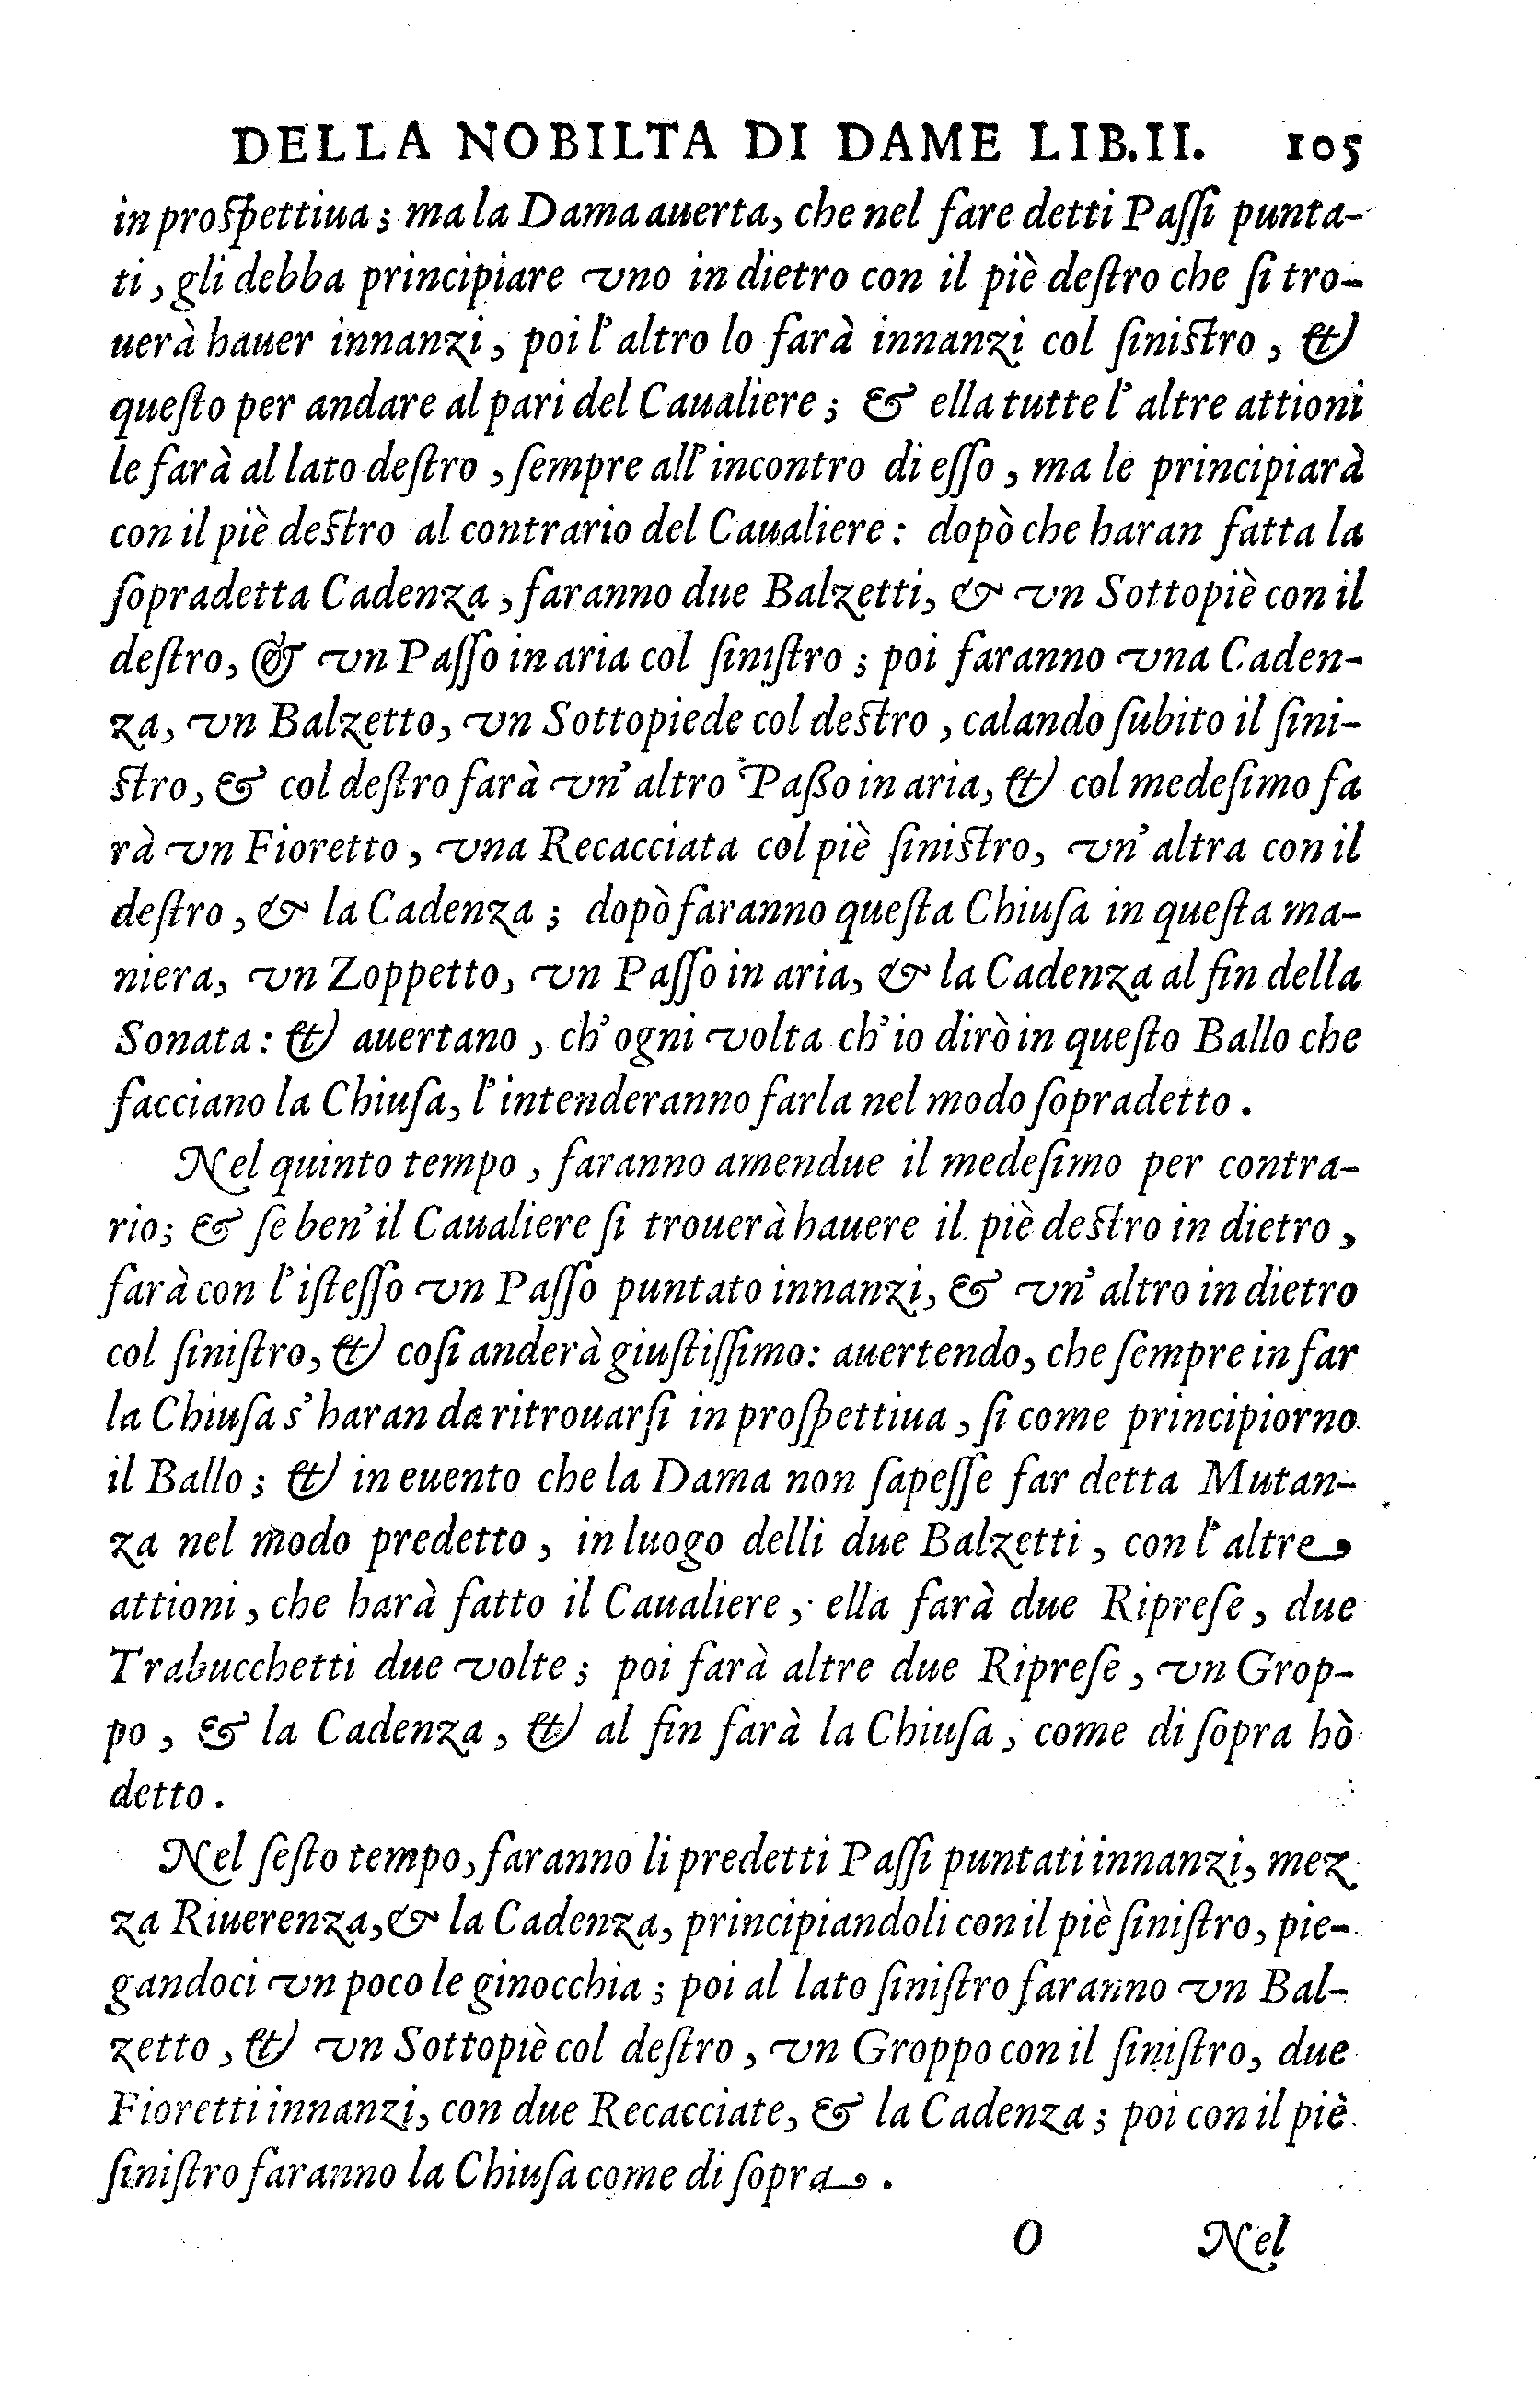 DELLA NOBILTA DI DAME LIB.II. 105
in proſpettiua; ma la Dama auerta, che nel fare detti Paſſi punta-
ti, gli debba principiare vno in dietro con il piè deſtro che ſi tro-
uerà hauer innanzi, poi l'altro lo farà innanzi col ſiniſtro, &
queſto per andare al pari del Caualiere; & ella tutte l'altre attioni
le farà al lato deſtro, ſempre all'incontro di eſſo, ma le principiarà
con il piè deſtro al contrario del Caualiere: dopò che haran fatta la
ſopradetta Cadenza, faranno due Balzetti, & vn Sottopiè con il
deſtro, & vn Paſſo in aria col ſiniſtro; poi faranno vna Caden-
za, vn Balzetto, vn Sottopiede col deſtro, calando ſubito il ſini-
ſtro, & col deſtro farà vn'altro Paßo in aria, & col medeſimo fa
rà vn Fioretto, vna Recacciata col piè ſiniſtro, vn'altra con il
deſtro, & la Cadenza; dopò faranno queſta Chiuſa in queſta ma-
niera, vn Zoppetto, vn Paſſo in aria, & la Cadenza al fin della
Sonata: & auertano, ch'ogni volta ch'io dirò in queſto Ballo che
facciano la Chiuſa, l'intenderanno farla nel modo ſopradetto.
Nel quinto tempo, faranno amendue il medeſimo per contra-
rio; & ſe ben'il Caualiere ſi trouerà hauere il piè deſtro in dietro,
farà con l'iſteſſo vn Paſſo puntato innanzi, & vn'altro in dietro
col ſiniſtro, & coſi anderà giuſtiſſimo: auertendo, che ſempre in far
la Chiuſa s'haran da ritrouarſi in proſpettiua, ſi come principiorno
il Ballo; & in euento che la Dama non ſapeſſe far detta Mutan-
za nel modo predetto, in luogo delli due Balzetti, con l'altre
attioni, che harà fatto il Caualiere, ella farà due Ripreſe, due
Trabucchetti due volte; poi farà altre due Ripreſe, vn Grop-
po, & la Cadenza, & al fin farà la Chiuſa, come di ſopra hò
detto.
Nel ſeſto tempo, faranno li predetti Paſſi puntati innanzi, mez
za Riuerenza, & la Cadenza, principiandoli con il piè ſiniſtro, pie-
gandoci vn poco le ginocchia; poi al lato ſiniſtro faranno vn Bal-
zetto, & vn Sottopiè col deſtro, vn Groppo con il ſiniſtro, due
Fioretti innanzi, con due Recacciate, & la Cadenza; poi con il piè
ſiniſtro faranno la Chiuſa come di ſopra.
O Nel